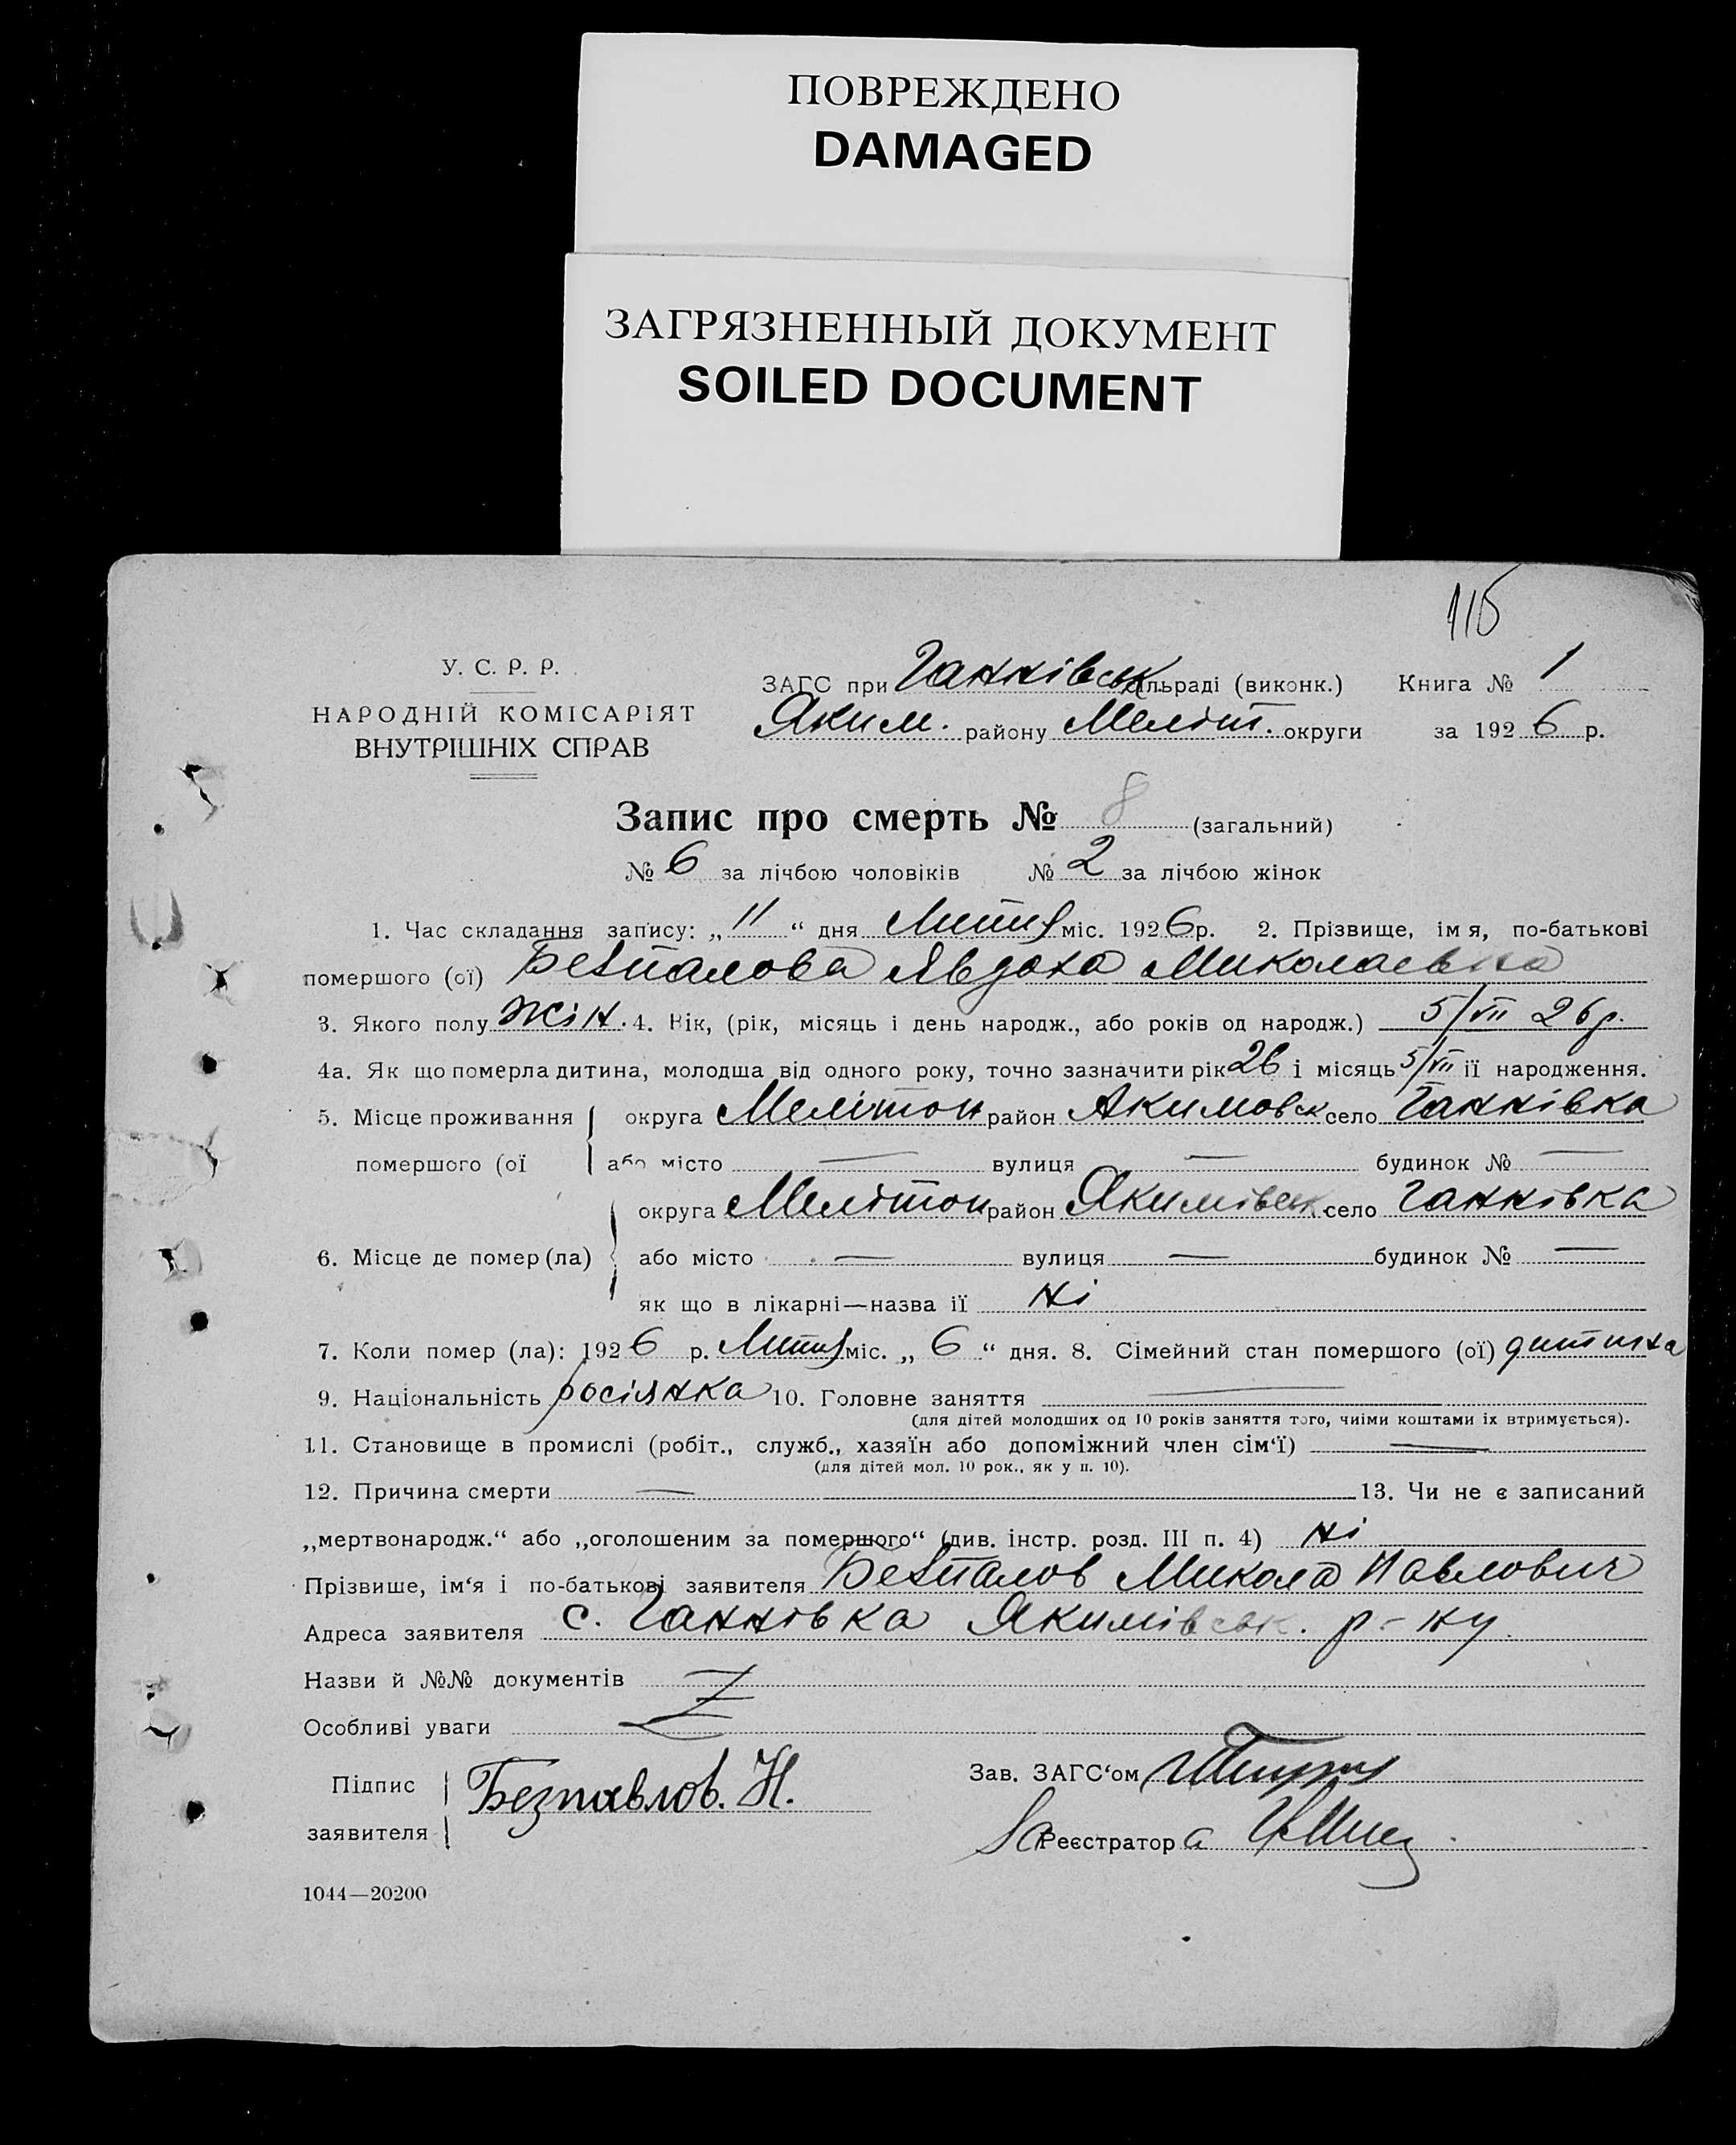 ПОВРЕЖДЕНО
DAMAGED
ЗАГРЯЗНЕННЫЙ ДОКУМЕНТ
SOILED DOCUMENT
115
У. С. Р. Р.
НАРОДНІЙ КОМІСАРІЯТ
ВНУТРІШНІХ СПРАВ
ЗАГС при Ганнівськ сільраді (виконк.) Книга № 1
Яким. району Меліт. округи за 1926 р.
Запис про смерть № 8 (загальний)
№ 6 за лічбою чоловіків № 2 за лічбою жінок
1. Час складання запису: „11“ дня Липня міс. 1926 р. 2. Прізвище, ім я, по-батькові
помершого (ої) Безпалова Явдоха Миколаевна
3. Якого полу жін. 4. Вік, (рік, місяць і день народж., або років од народж.) 5/VII 26 р.
4а. Як що померла дитина, молодша від одного року, точно зазначити рік 26 і місяць 5/VII ії народження.
5. Місце проживання округа Мелітоп район Акимовск село Ганнівка
помершого (ої або місто — вулиця — будинок № —
округа Мелітоп район Якимівськ. село Ганнівка
6. Місце де помер (ла) або місто — вулиця — будинок № —
як що в лікарні—назва ії ні
7. Коли помер (ла): 1926 р. Липня міс. „6“ дня. 8. Сімейний стан помершого (ої) дитина
9. Національність росіянка 10. Головне заняття —
(для дітей молодших од 10 років заняття того, чиїми коштами іх втримується).
11. Становище в промислі (робіт., служб., хазяїн або допоміжний член сім‘ї) —
(для дітей мол. 10 рок., як у п. 10).
12. Причина смерти — 13. Чи не є записаний
„мертвонародж.“ або „оголошеним за помершого“ (див. інстр. розд. III п. 4) ні
Прізвише, ім‘я і по-батькові заявителя Безпалов Микола Павлович
Адреса заявителя с. Ганнівка Якимівськ. р-ну
Назви й №№ документів
Особливі уваги
Підпис Безпавлов. Н. Зав. ЗАГС‘ом
заявителя За Реєстратора
1044—20200